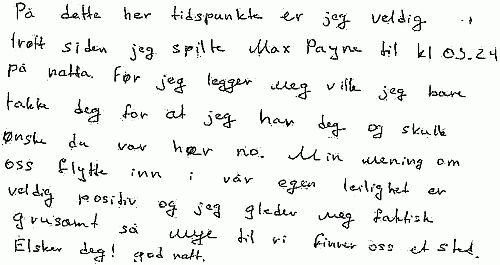 På dette her tidspunkte er jeg veldig
trøtt siden jeg spilte Max Payne til kl 05.24
på natta. Før jeg legger meg ville jeg bare
takke deg for at jeg har deg og skulle
ønske du var hær no. Min mening om
oss flytte inn i vår egen leilighet er
veldig positiv og jeg gleder meg faktisk
grusomt så mye til vi finner oss et sted.
Elsker deg! god natt.